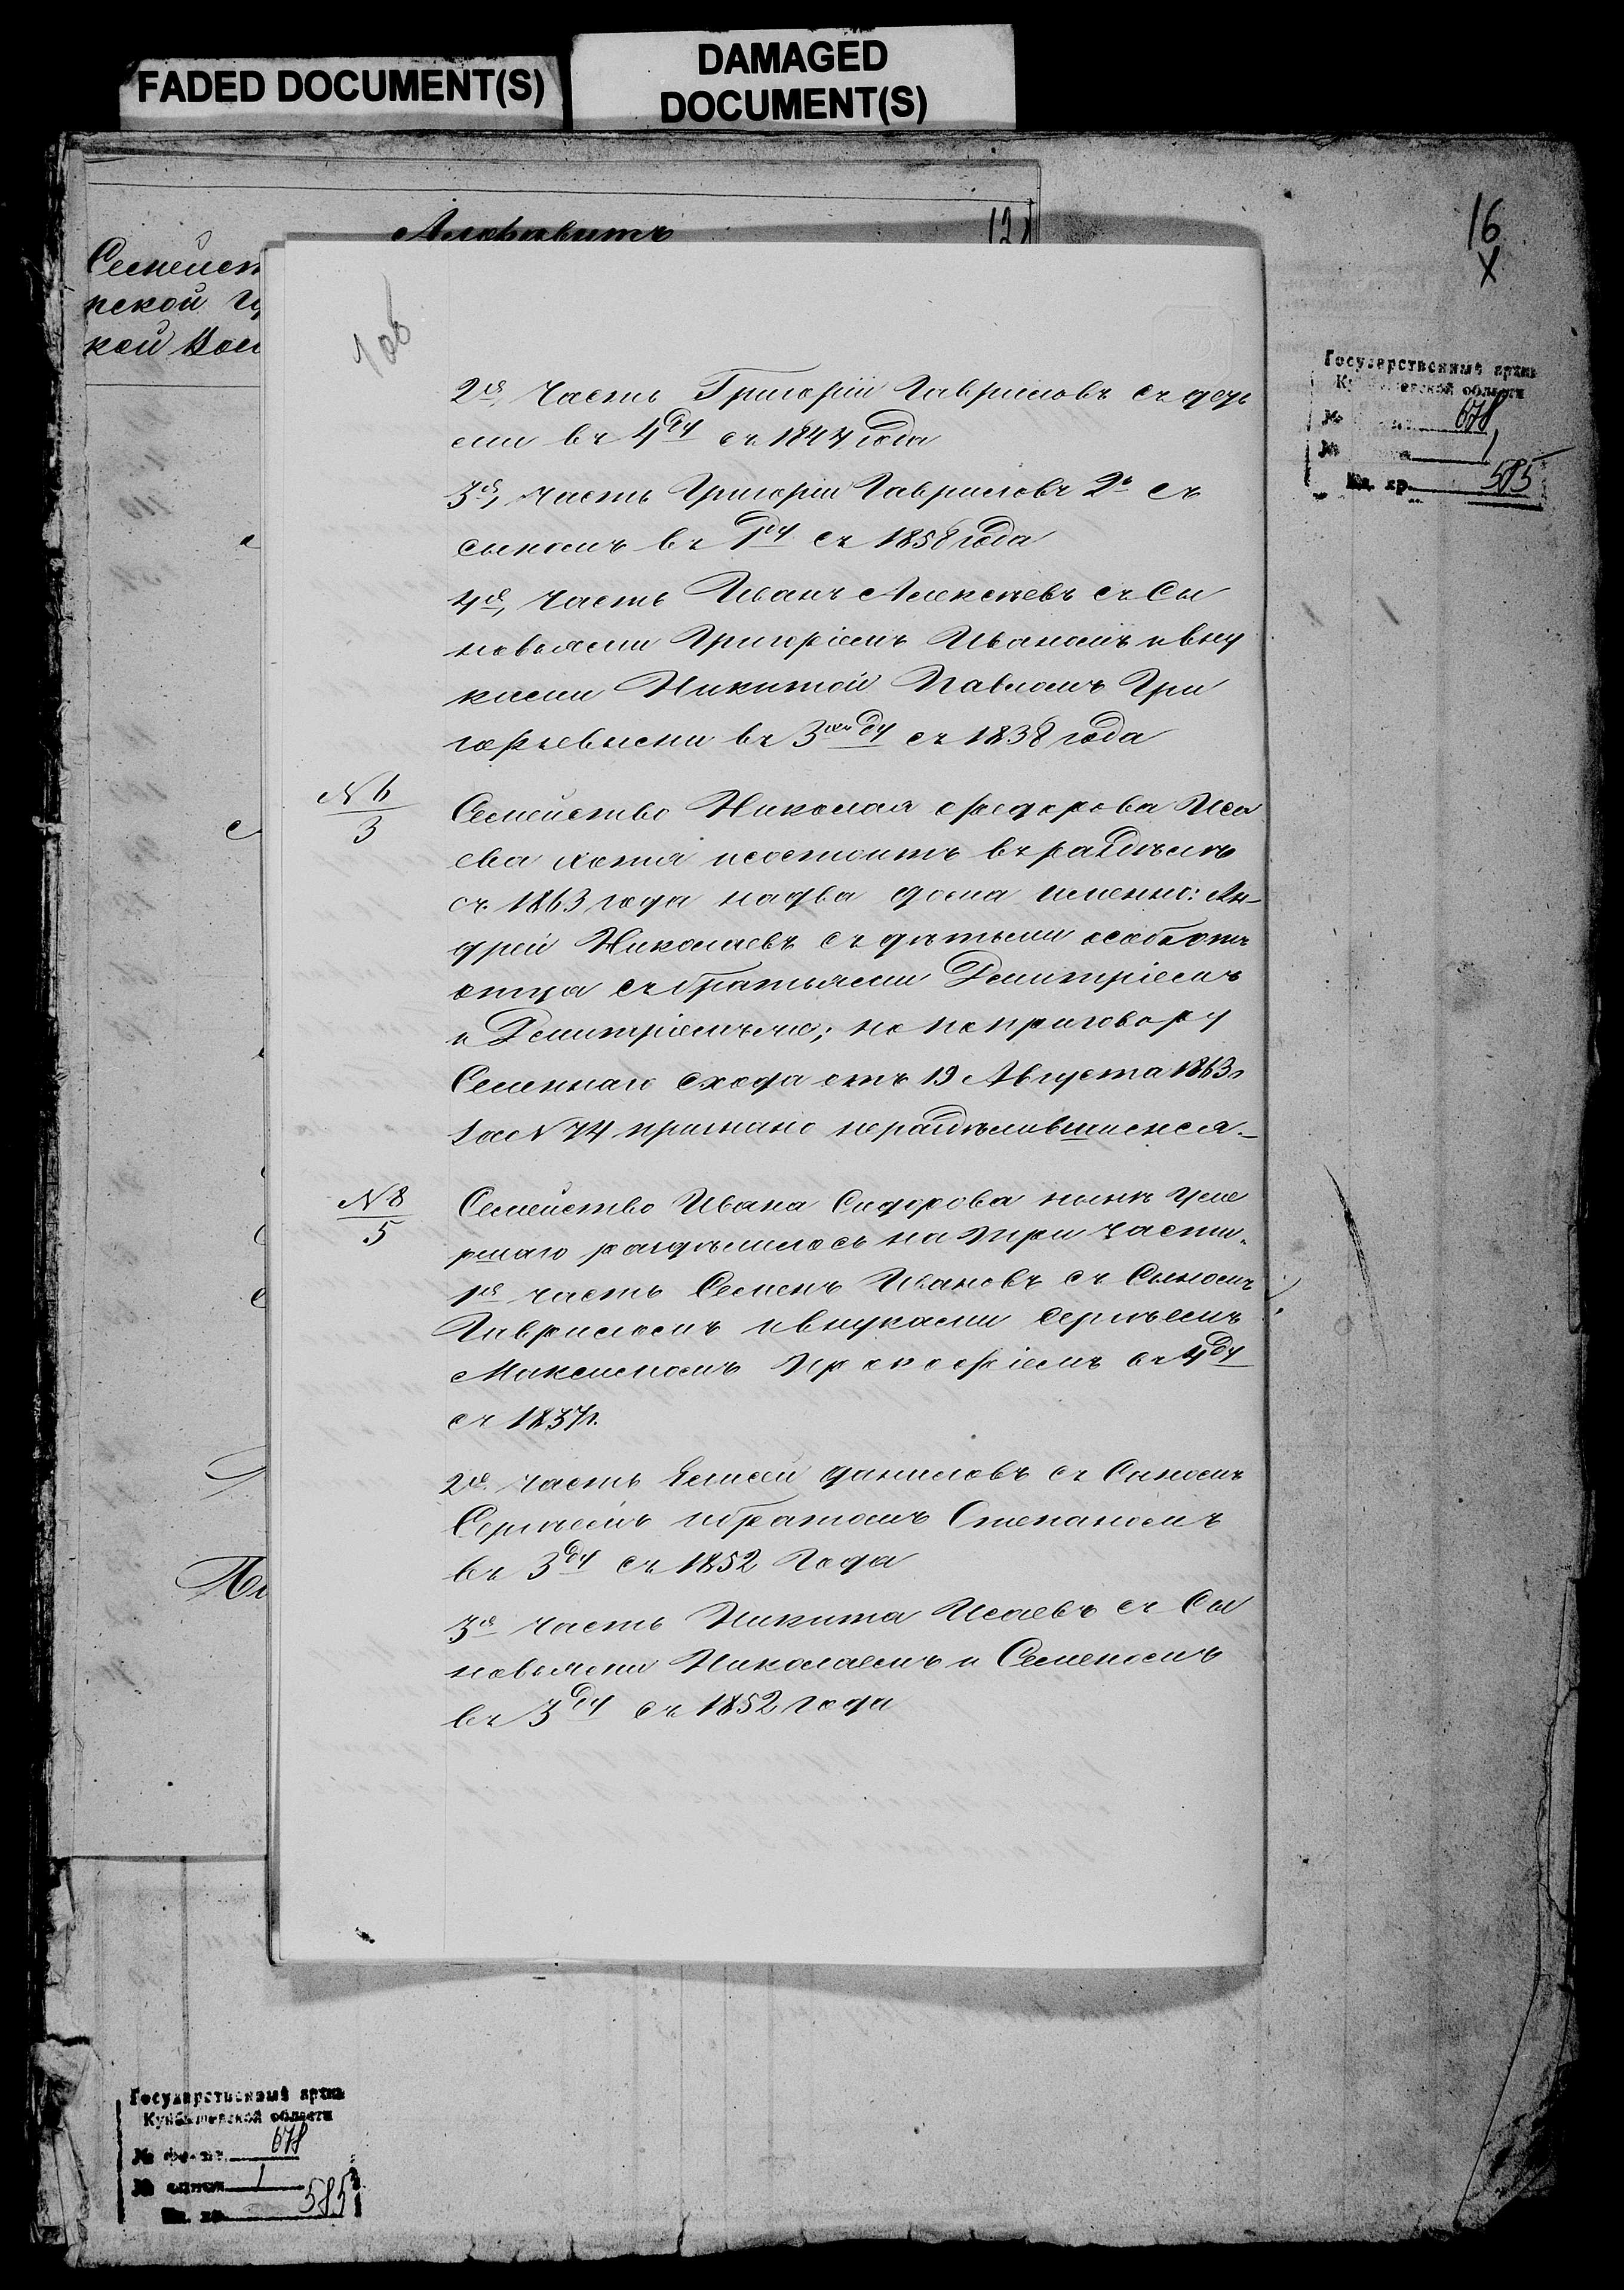 FADED DOCUMENT(S)
DAMAGED
DOCUMENT(S)
Алфавитъ
121
Семейст
пской гу
кой Вол
16
X
Государственный архив
Куйбышевской области
№ 678
№ 1
Ед. хр. 585
1об
2я, Часть Григорій Гавриловъ съ дѣть
ми въ 4 ду съ 1847 года
3я, часть Григорій Гавриловъ 2й съ
сыномъ въ 1 ду съ 1858 года
4я, Часть Иванъ Алексѣевъ съ Сы
новьями Григоріемъ Иваномъ и вну
ками Никитой Павломъ Гри
горьевыми въ 3 ду съ 1838 года
N 6
3
Семейство Николая Федорова Иса
ева хотя и состоитъ въ раздѣлѣ
съ 1863 года на два дома именно: Ан-
дрей Николаевъ съ дѣтьми особо отъ
отца съ братьями Демитріемъ
и Демитріемъ же; но по приговору
Селеннаго схода отъ 19 Августа 1863 г
за N 74 признано нераздѣлившимся.
N 8
5
Семейство Ивана Сидорова нынѣ уме
ршаго раздѣлилось на три части.
1я часть Семенъ Ивановъ съ Сыномъ
Гавриломъ и внуками Сергѣемъ
Максимомъ Прокофіемъ въ 4 ду
съ 1837 г.
2я часть Елисей Даниловъ съ Сыномъ
Сергѣемъ и братомъ Степаномъ
въ 3 ду съ 1852 Года
3я часть Никита Исаевъ съ Сы
новьями Николаемъ и Семеномъ
въ 3 ду съ 1852 года
Государственный архив
Куйбышевской области
№ фонда 678
№ описи 1
Ед. хр. 585